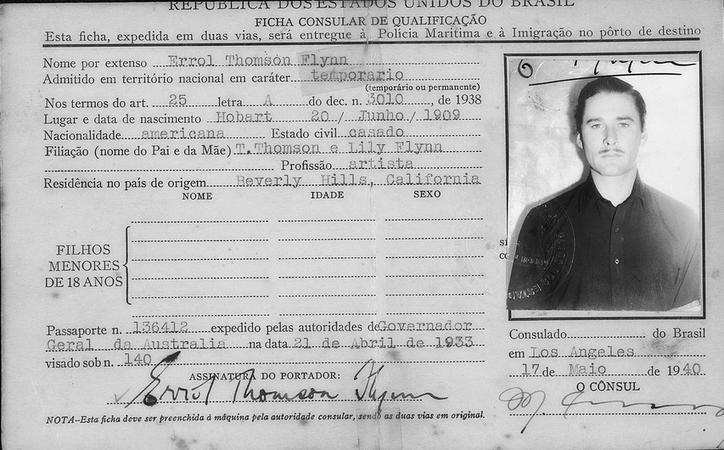 REPÚBLICA DOS ESTADOS UNIDOS DO BRASIL
FICHA CONSULAR DE QUALIFICAÇÃO
Esta ficha, expedida em duas vias, será entregue à Polícia Marítima e à Imigração no pôrto de destino
Nome por extenso Errol Thomson Flynn
Admitido em território nacional em caráter temporario
(temporário ou permanente)
Nos termos do art. 25 letra A do dec. n. 3010, de 1938
Lugar e data de nascimento Hobart 20 / Junho / 1909
Nacionalidade americana Estado civil casado
Filiação (nome do Pai e da Mãe) T.Thomson e Lily Flynn
Profissão artista
Residência no país de origem Beverly Hills, California
NOME IDADE SEXO
FILHOS
MENORES
DE 18 ANOS
Passaporte n. 136412 expedido pelas autoridades de Governador
Geral da Australia na data 21 de Abril de 1933
visado sob n. 140
ASSINATURA DO PORTADOR:
Errol Thomson Flynn
NOTA—Esta ficha deve ser preenchida á máquina pela autoridade consular, sendo as duas vias em original.
Consulado do Brasil
em Los Angeles
17 de Maio de 1940
O CÔNSUL